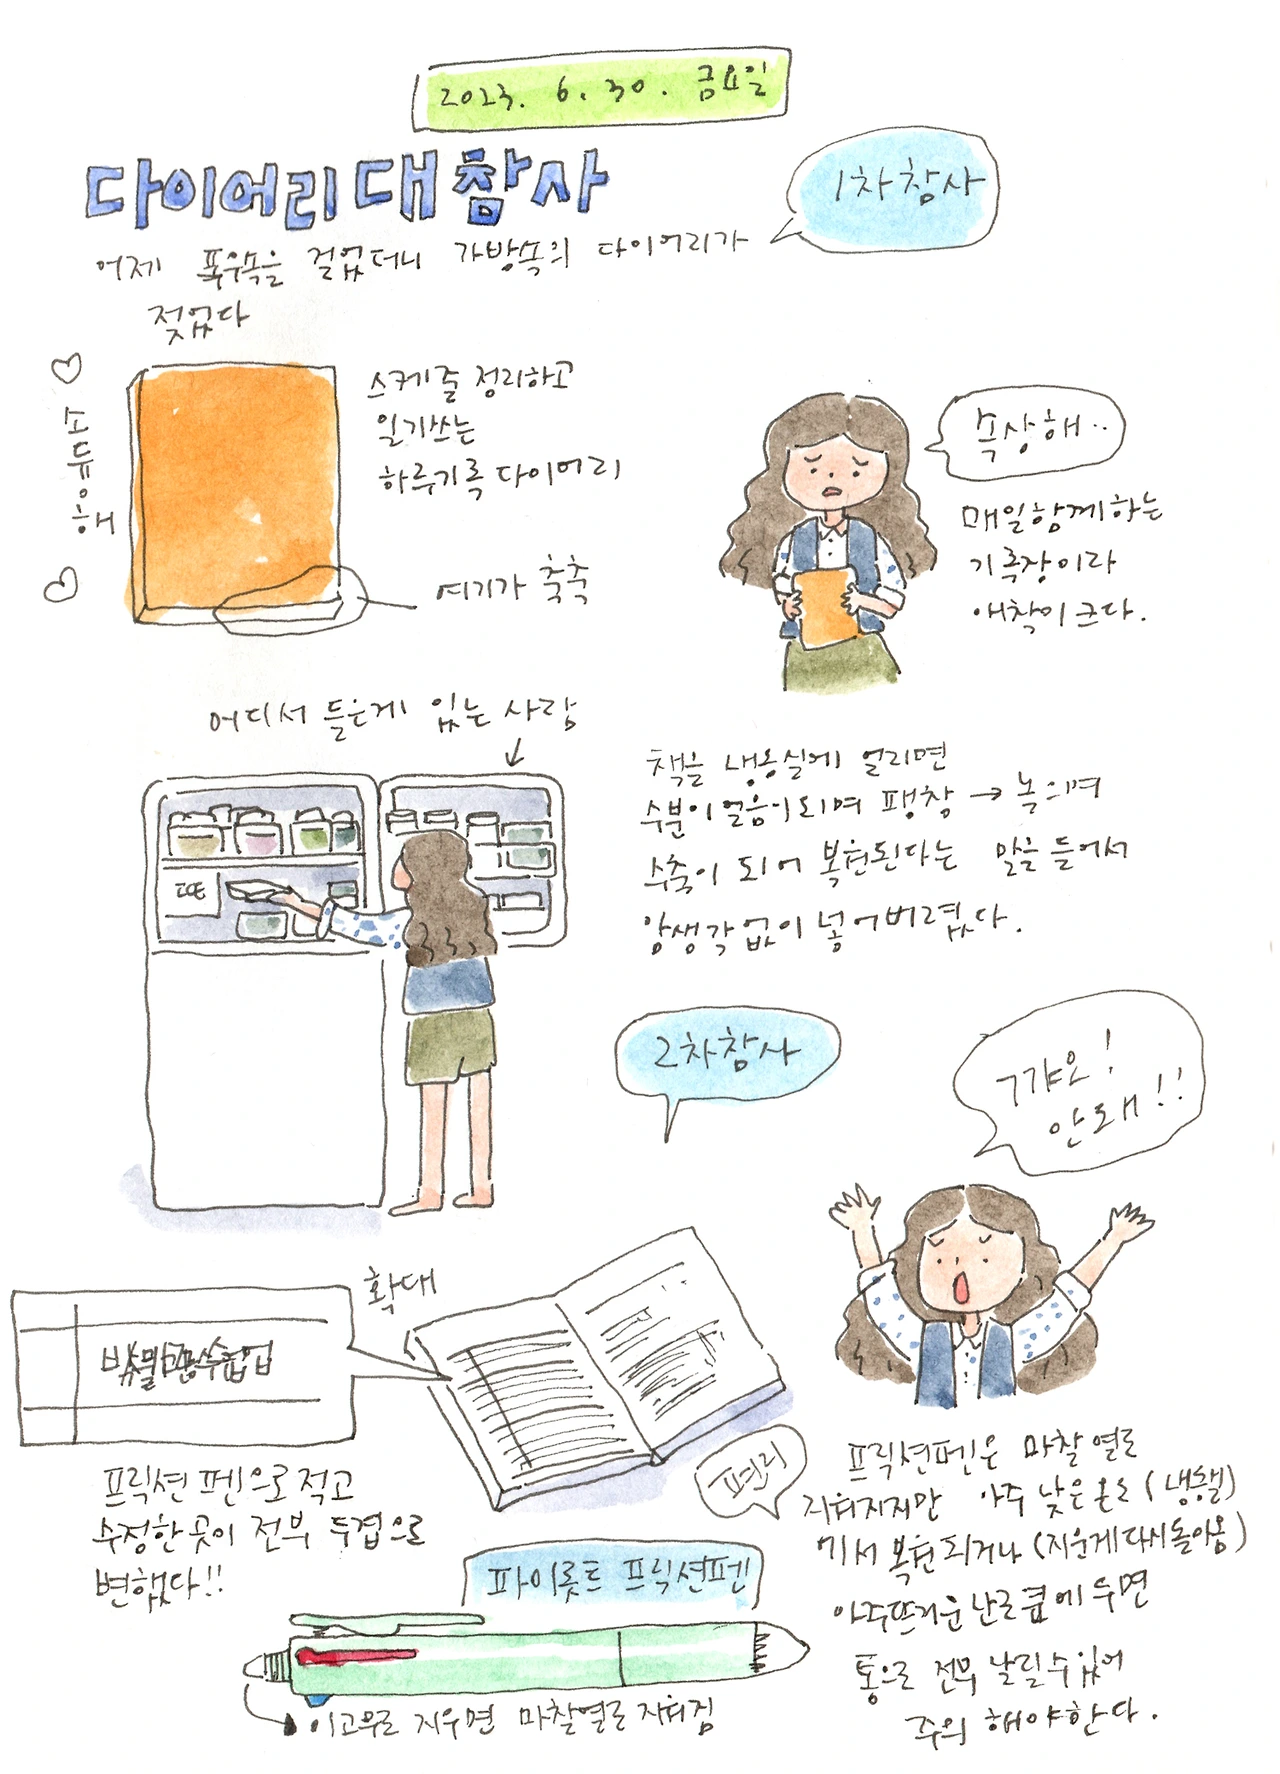 2023. 6. 30. 금요일
다이어리 대참사
1차참사
어제 폭우속을 걸었더니 가방속의 다이어리가
젖었다
♡ 소듕해 ♡
스케줄 정리하고
일기쓰는
하루기록 다이어리
여기가 축축
속상해..
매일함께하는
기록장이라
애착이 크다.
어디서 들은게 있는 사람
ICE
책을 냉동실에 얼리면
수분이 얼음이 되며 팽창 → 녹으며
수축이 되어 복원된다는 말을 들어서
암생각없이 넣어버렸다.
2차참사
ㄱ갸오!
안돼!!
확대
프릭션 펜으로 적고
수정한 곳이 전부 두겹으로
변했다!!
편리
파이롯트 프릭션펜
이고무로 지우면 마찰열로 지워짐
프릭션펜은 마찰 열로
지워지지만 아주 낮은 온도 (냉동실)
에서 복원 되거나 (지운게 다시 돌아옴)
아주 뜨거운 난로 옆에 두면
통으로 전부 날릴 수 있어
주의 해야한다.